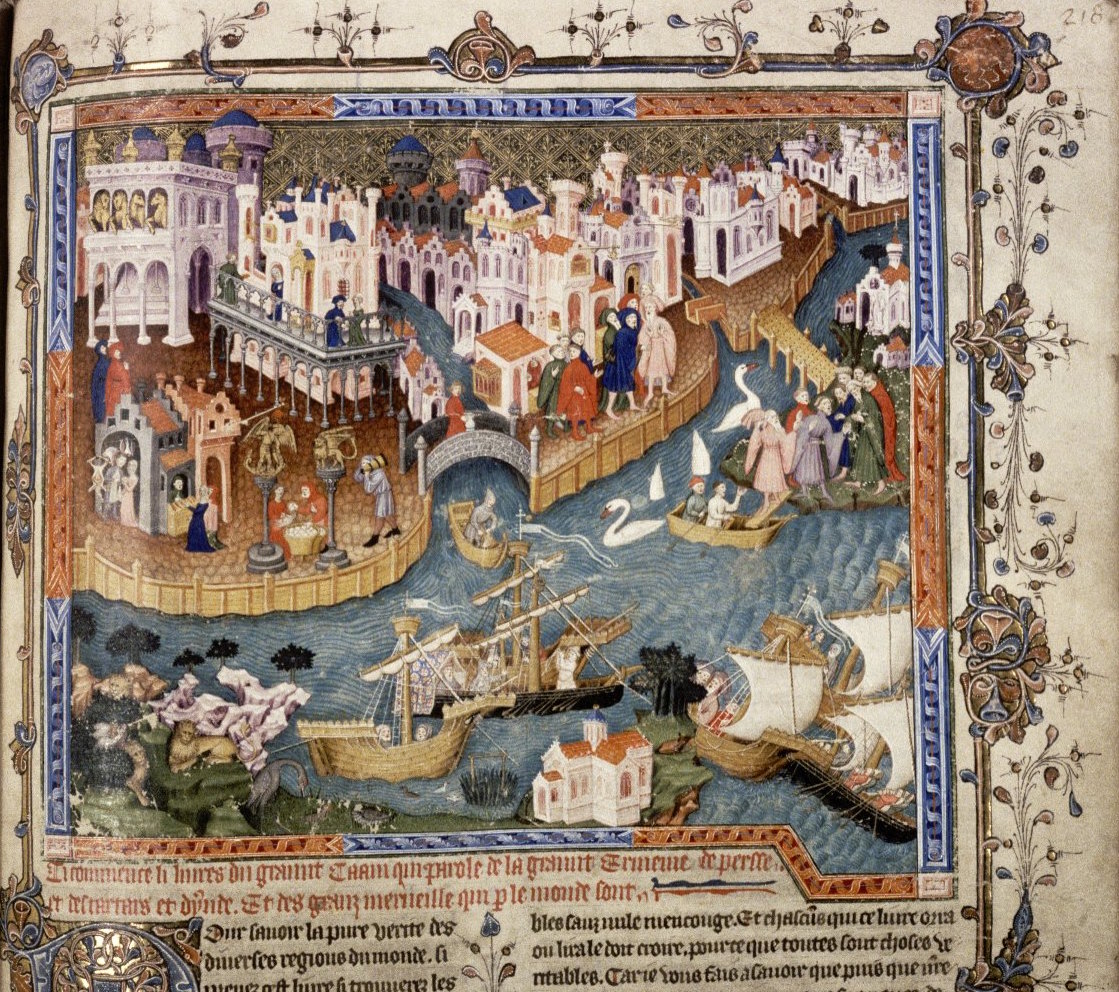 218
Ci commence li livres du graunt Caam qui parole de la graunt Ermenie de persse
et des tartars et dynde. Et des granz merueille qui p le monde sont
Our sauoir la pure verite des
diuerses regions du monde. si
prenez cest liure si trouuerez les
bles sanz nule mencouge. Et chascūs qui ce liure orra
ou lira le doit croire, pource que toutes sont choses ve
ritables. Car ie vous fais a sauoir que puis que nr̄e